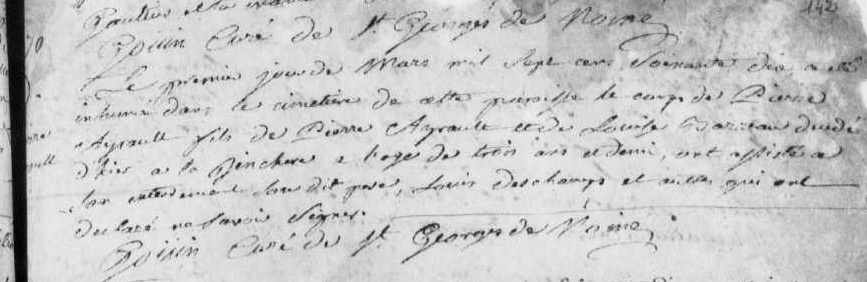 142
Goiiin Curé de St Georges de Noiné
Le premier jour de Mars mil Sept cens Soixante dix a eté
inhumé dans le cimetiere de cette paroisse le corps de Pierre
Ayrault fils de Pierre Ayrault et de Louise decede
d'hier a la Pinchere a l'age de trois ans et demi, ont assistés a
son enterrement son dit pere, Louis deschamps et autres qui ont
declaré ne savoir Signer.
Goiiin Curé de St Georges de Noiné